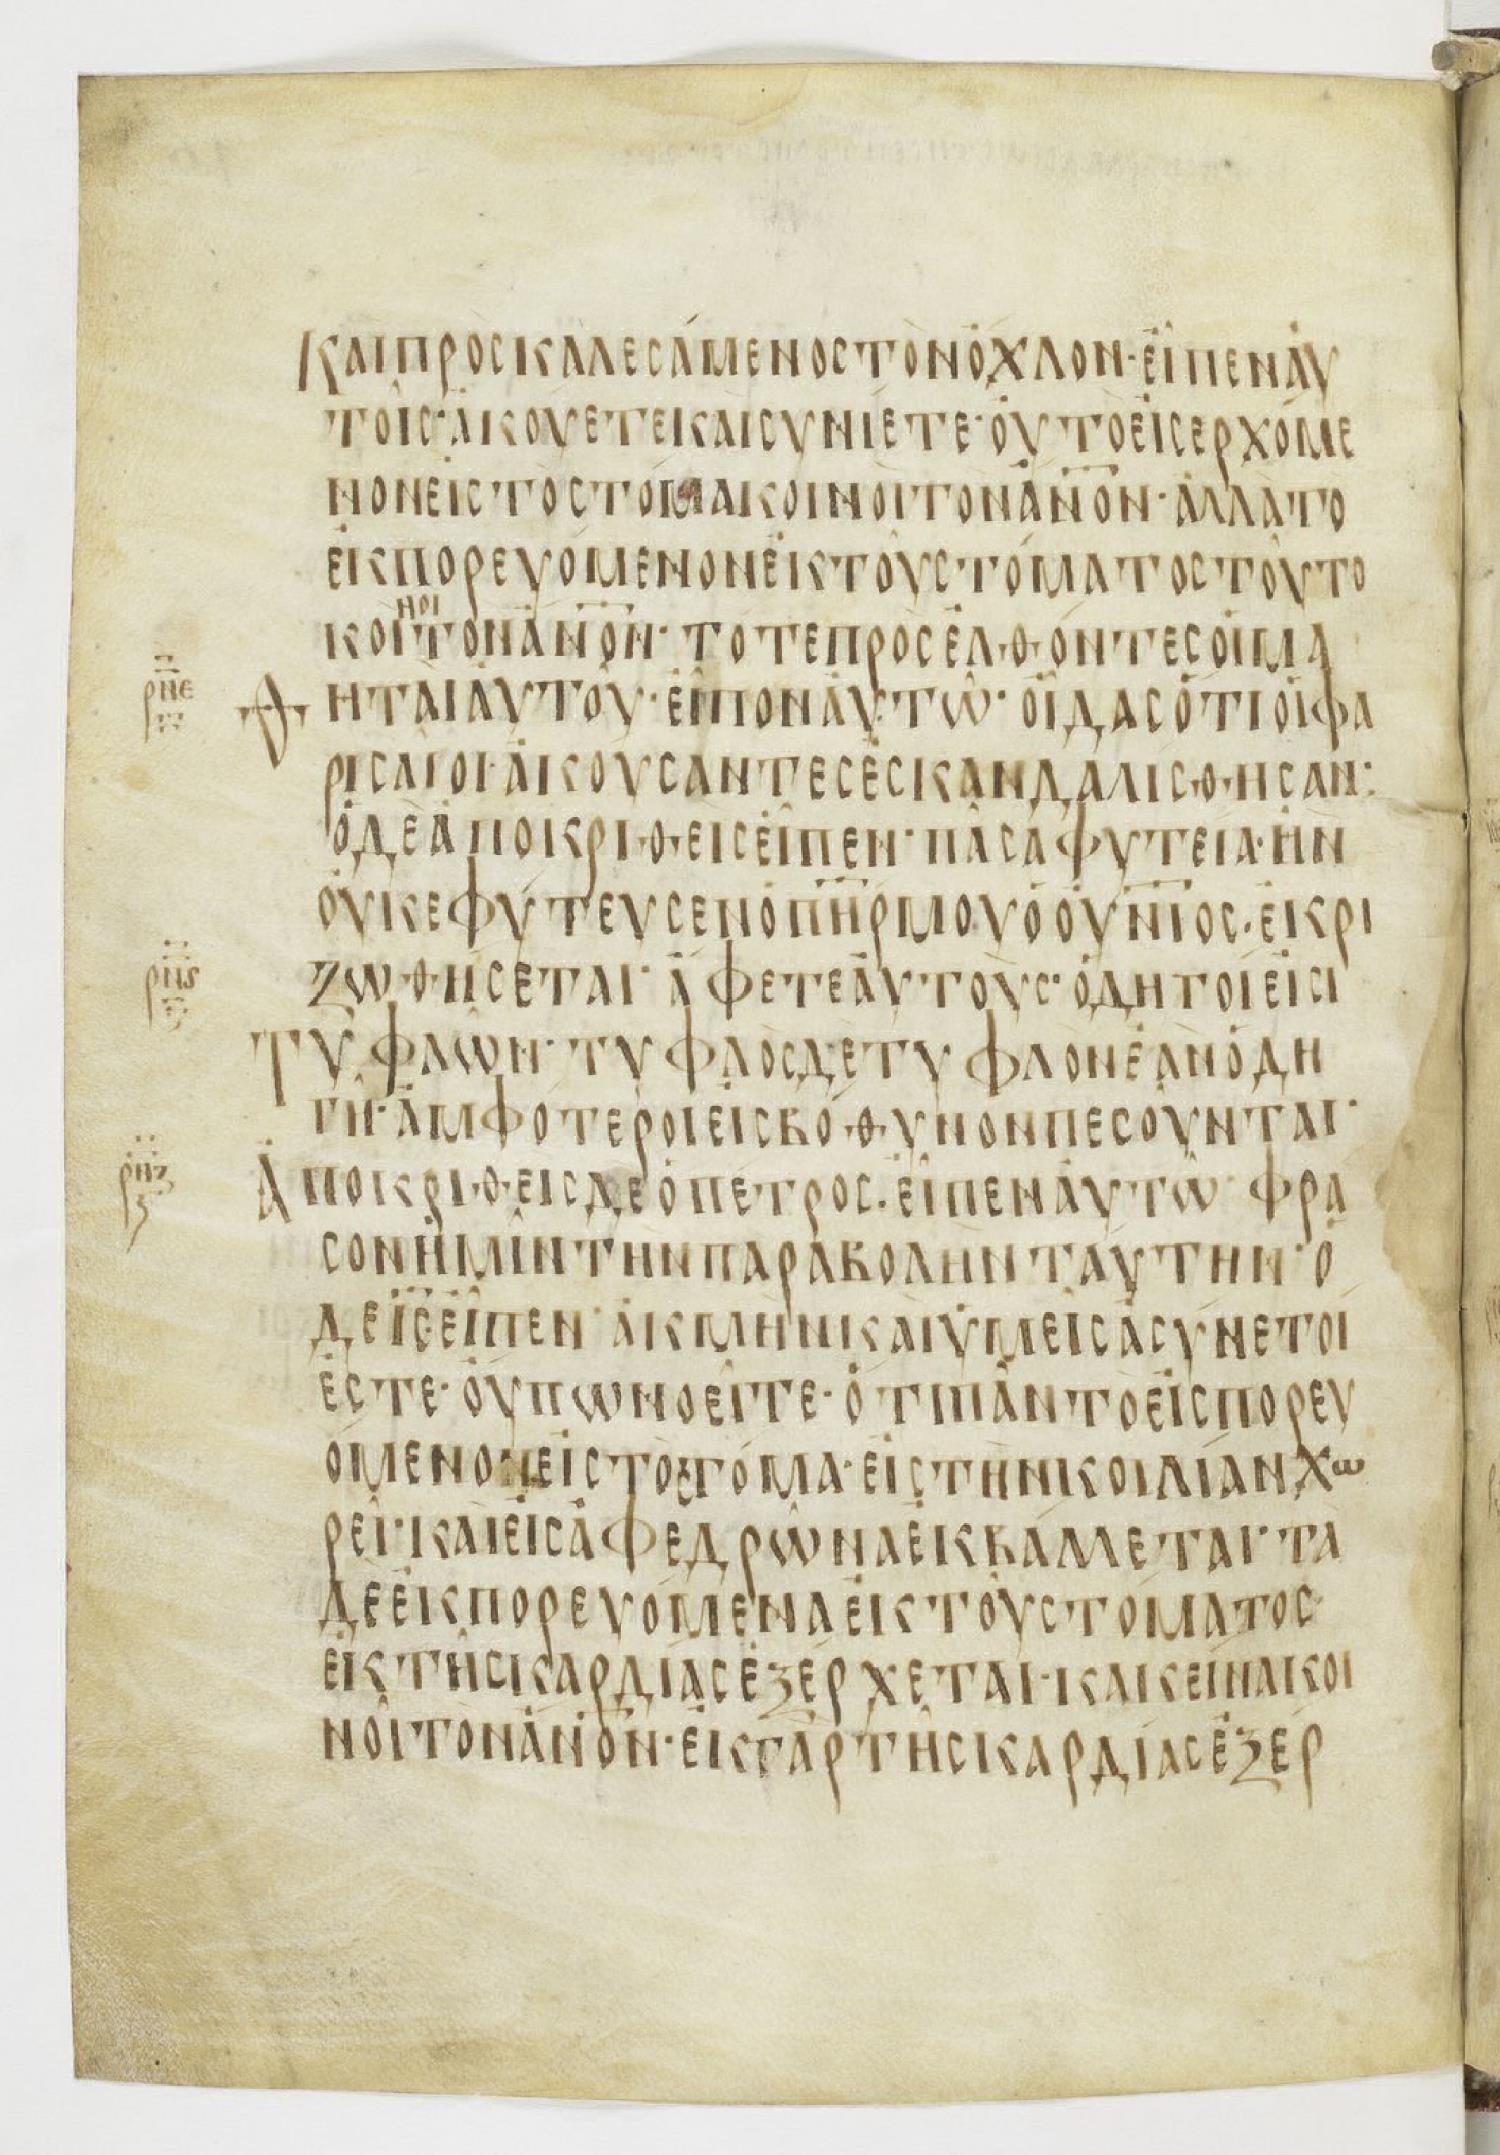 ΚΑΙΠΡΟΣΚΑΛΕΣΑΜΕΝΟΣΤΟΝΟΧΛΟΝ·ΕΙΠΕΝΑΥ
ΤΟΙΣ·ΑΚΟΥΕΤΕΚΑΙΣΥΝΙΕΤΕ·ΟΥΤΟΕΙΣΕΡΧΟΜΕ
ΝΟΝΕΙΣΤΟΣΤΟΜΑΚΟΙΝΟΙΤΟΝΑΝΟΝ·ΑΛΛΑΤΟ
ΕΚΠΟΡΕΥΟΜΕΝΟΝΕΚΤΟΥΣΤΟΜΑΤΟΣΤΟΥΤΟ
ΝΟΙ
ΚΟΙΤΟΝΑΝΟΝ·ΤΟΤΕΠΡΟΣΕΛΘΟΝΤΕΣΟΙΜΑ
ΡΠΕ
ΘΗΤΑΙΑΥΤΟΥ·ΕΙΠΟΝΑΥΤΩ·ΟΙΔΑΣΟΤΙΟΙΦΑ
ΡΙΣΑΙΟΙ·ΑΚΟΥΣΑΝΤΕΣΕΣΚΑΝΔΑΛΙΣΘΗΣΑΝ:
ΟΔΕΑΠΟΚΡΙΘΕΙΣΕΙΠΕΝ·ΠΑΣΑΦΥΤΕΙΑ·ΗΝ
ΟΥΚΕΦΥΤΕΥΣΕΝΟΠΗΡΜΟΥΟΟΥΝΙΟΣ·ΕΚΡΙ
ΡΠϚ
ΖΩΘΗΣΕΤΑΙ·ΑΦΕΤΕΑΥΤΟΥΣ·ΟΔΗΓΟΙΕΙΣΙ
ΤΥΦΛΩΝ·ΤΥΦΛΟΣΔΕΤΥΦΛΟΝΕΑΝΟΔΗ
ΓΗ·ΑΜΦΟΤΕΡΟΙΕΙΣΒΟΘΥΝΟΝΠΕΣΟΥΝΤΑΙ·
ΡΠΖ
Ϛ
ΑΠΟΚΡΙΘΕΙΣΔΕΟΠΕΤΡΟΣ·ΕΙΠΕΝΑΥΤΩ·ΦΡΑ
ΣΟΝΗΜΙΝΤΗΝΠΑΡΑΒΟΛΗΝΤΑΥΤΗΝ·Ο
ΔΕΙΣΕΙΠΕΝ·ΑΚΜΗΝΚΑΙΥΜΕΙΣΑΣΥΝΕΤΟΙ
ΕΣΤΕ·ΟΥΠΩΝΟΕΙΤΕ·ΟΤΙΠΑΝΤΟΕΙΣΠΟΡΕΥ
ΟΜΕΝΟΝΕΙΣΤΟΣΤΟΜΑ·ΕΙΣΤΗΝΚΟΙΛΙΑΝΧΩ
ΡΕΙ·ΚΑΙΕΙΣΑΦΕΔΡΩΝΑΕΚΒΑΛΛΕΤΑΙ·ΤΑ
ΔΕΕΚΠΟΡΕΥΟΜΕΝΑΕΚΤΟΥΣΤΟΜΑΤΟΣ
ΕΚΤΗΣΚΑΡΔΙΑΣΕΞΕΡΧΕΤΑΙ·ΚΑΚΕΙΝΑΚΟΙ
ΝΟΙΤΟΝΑΝΟΝ·ΕΚΓΑΡΤΗΣΚΑΡΔΙΑΣΕΞΕΡ